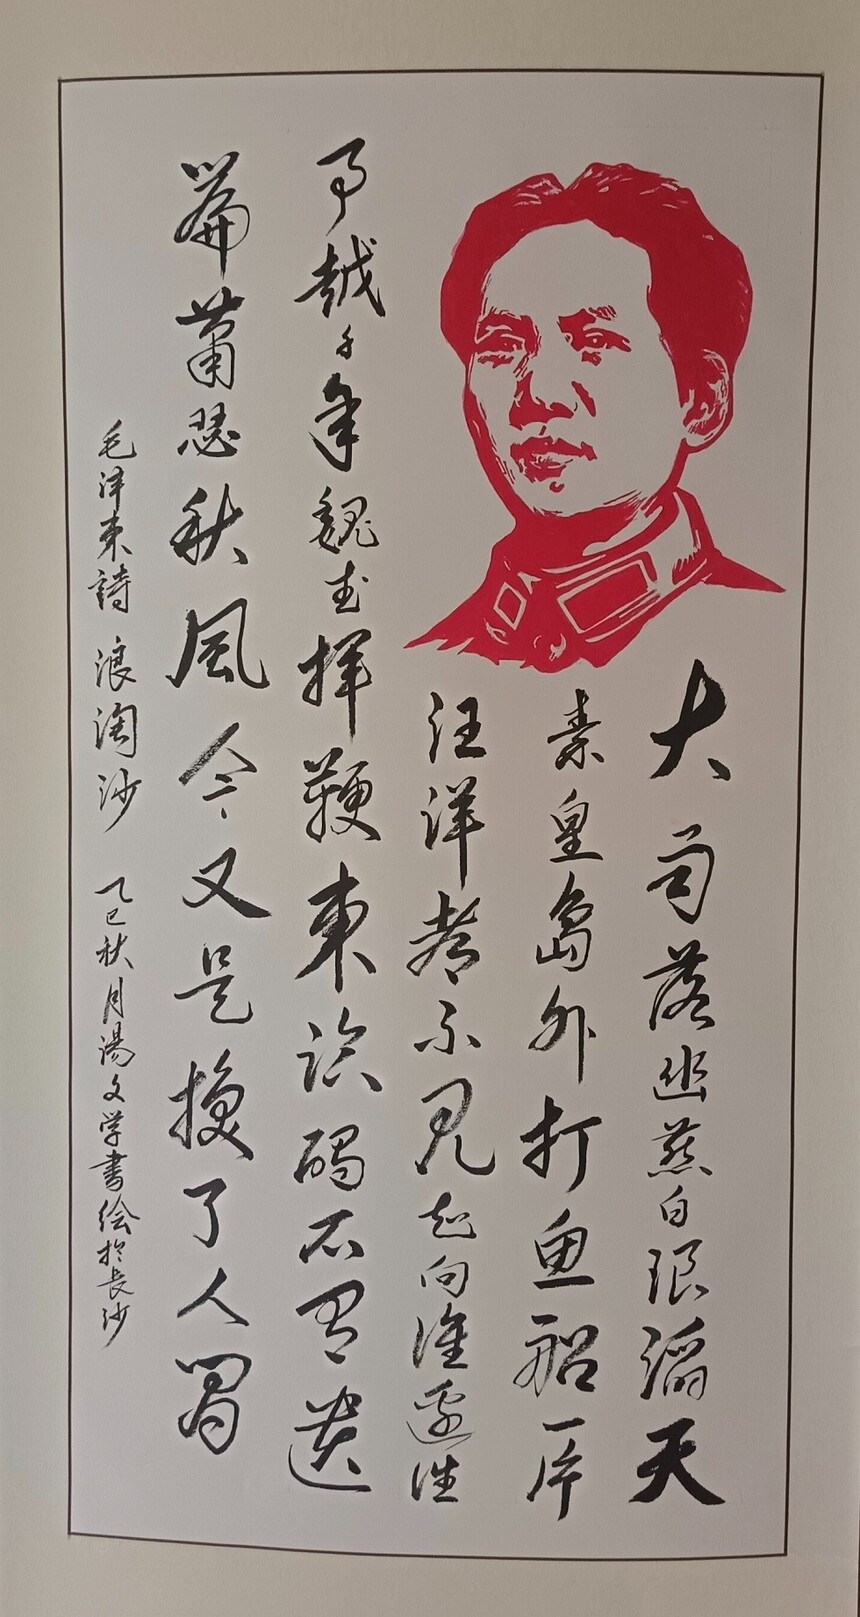 大雨落幽燕白浪滔天
秦皇岛外打鱼船一片
汪洋都不见知向谁边往
事越千年魏武挥鞭東临碣石有遗
篇萧瑟秋風今又是换了人间
毛泽東詩 浪淘沙 乙巳秋月湯文学書绘於長沙